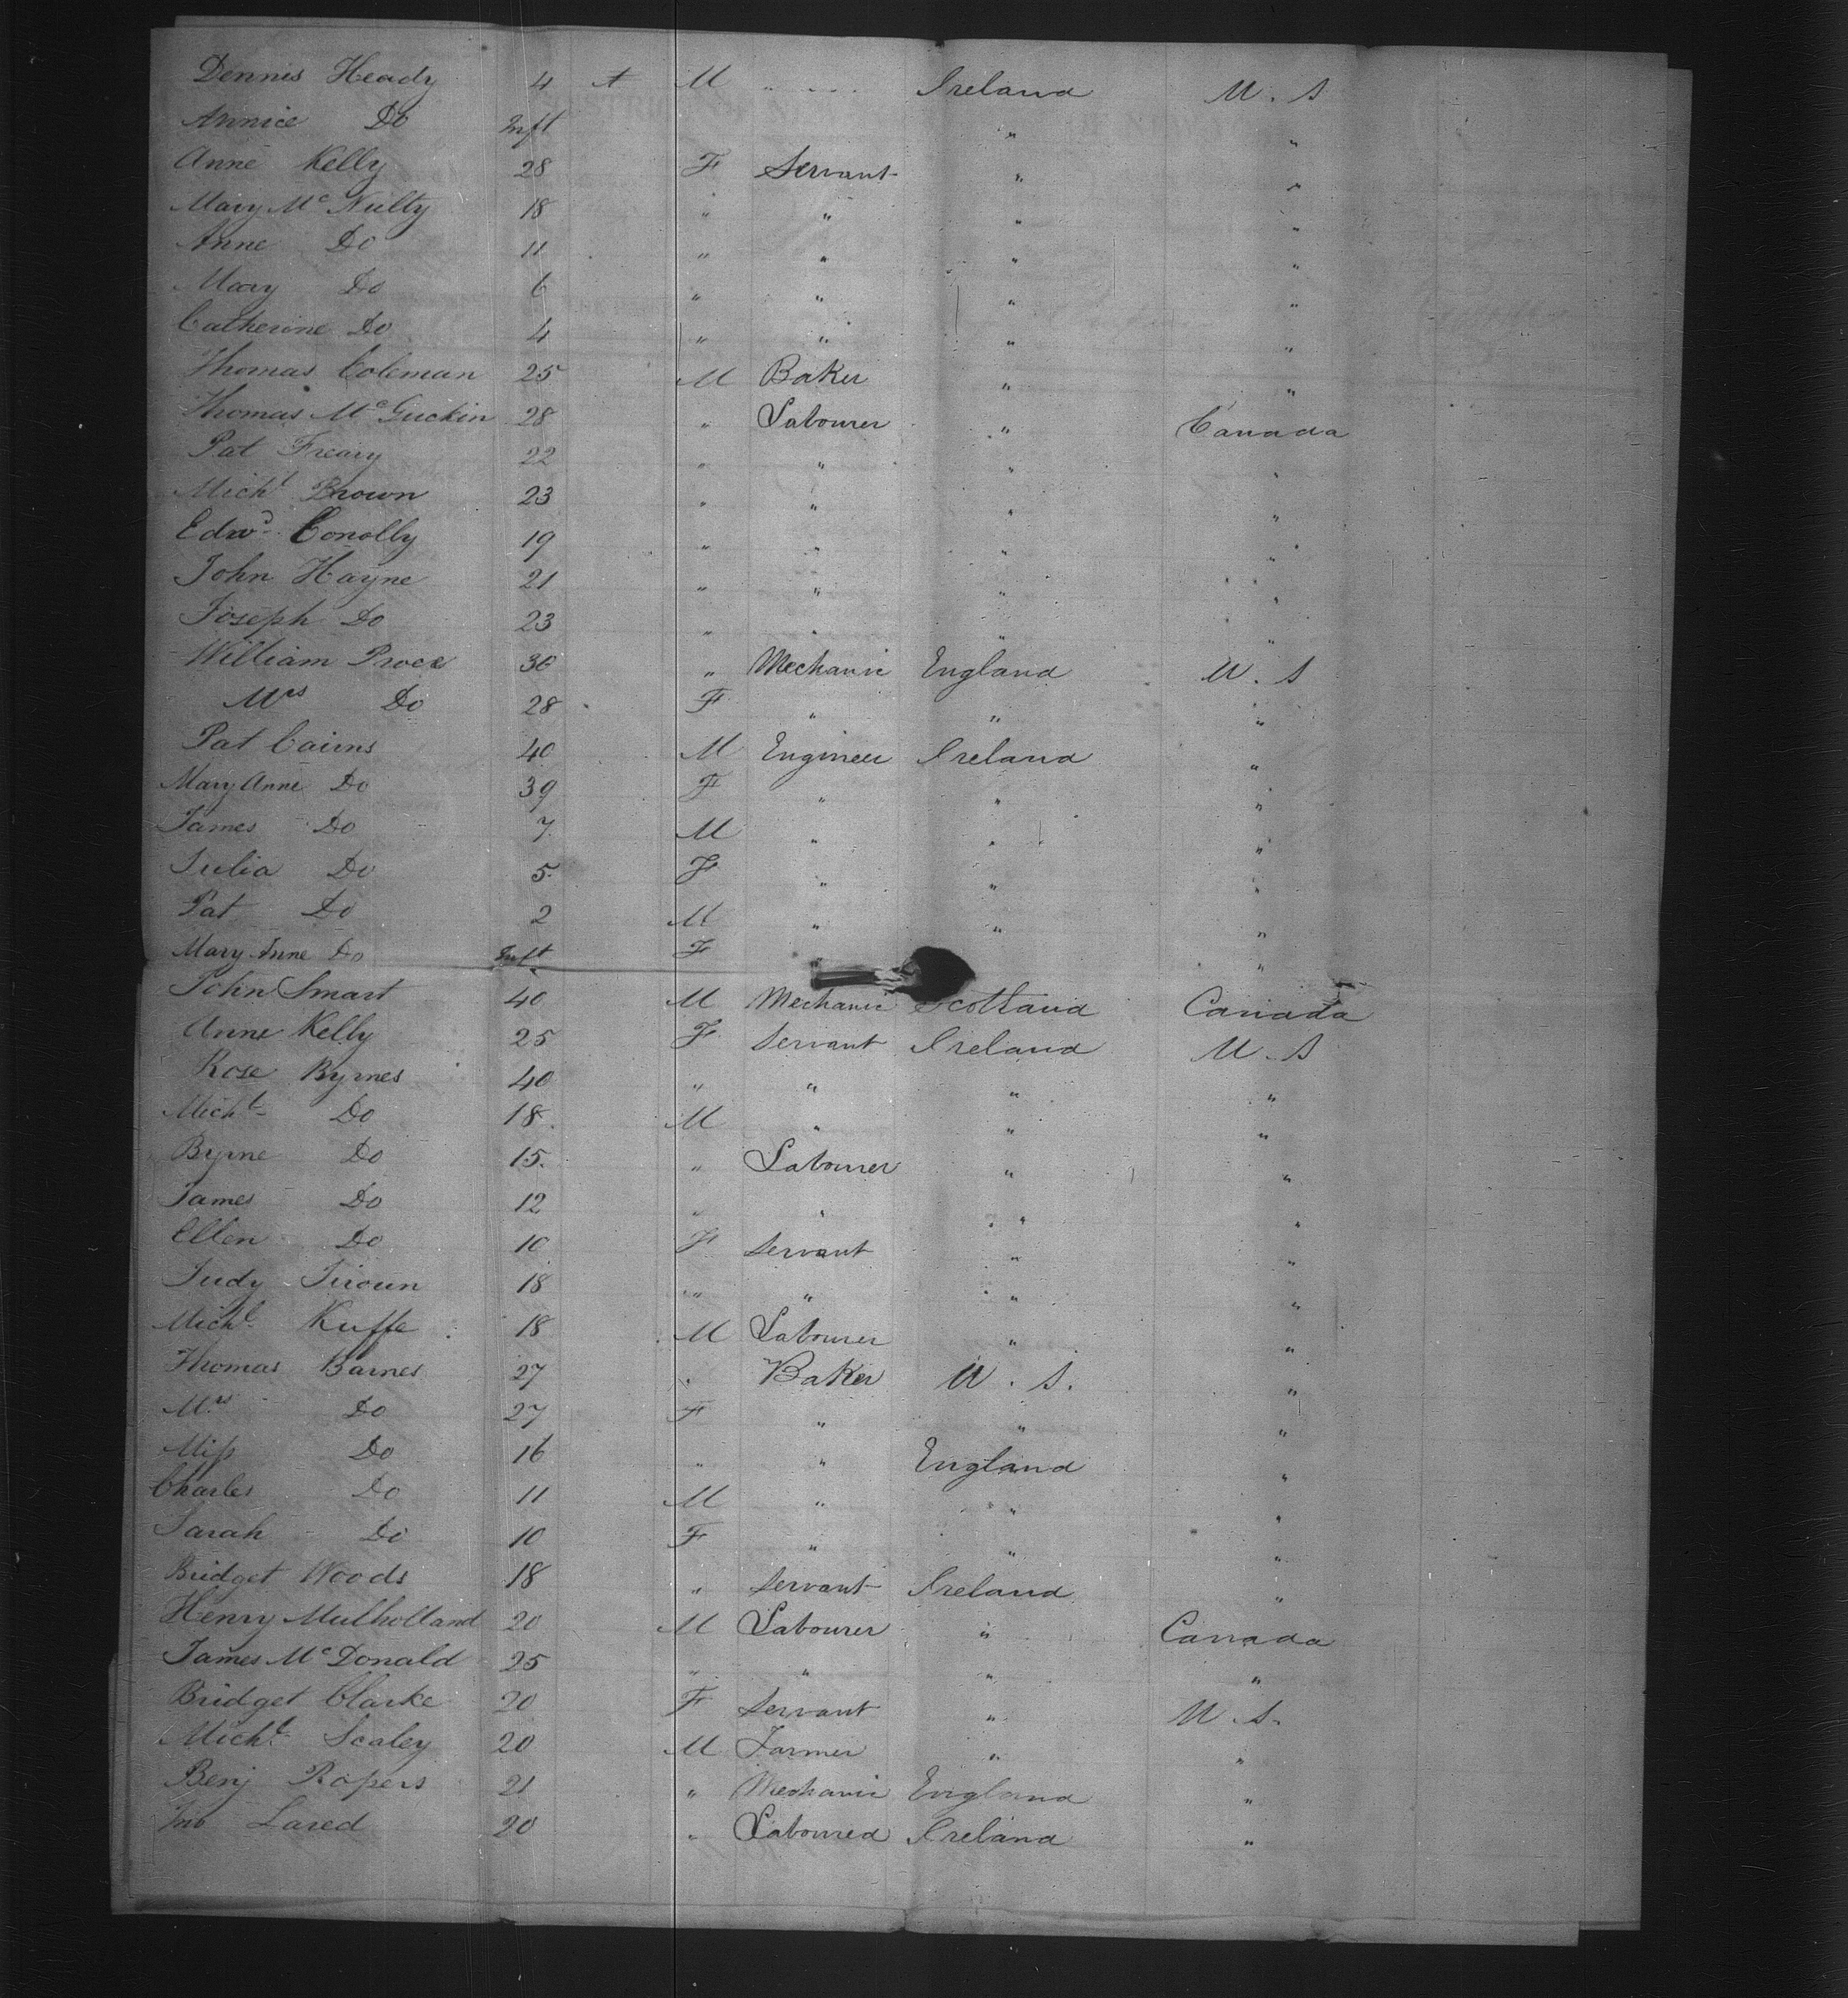 Dennis Heady 4 M " " Ireland U. S
Annice Do Inft " "
Anne Kelly 28 F Servant " "
Mary Mc Nulty 18 " " " "
Anne Do 11 " " " "
Mary Do 6 " " " "
Catherine Do 4 " " " "
Thomas Coleman 25 M Baker " "
Thomas Mc Guckin 28 " Labourer " Canada
Pat Freary 22 " " " "
Michl Brown 23 " " " "
Edwd Conolly 19 " " " "
John Hayne 21 " " " "
Joseph Do 23 " " " "
William 36 " Mechanic England U. S
Mrs Do 28 F " " "
Pat Cairns 40 M Engineer Ireland "
Mary Anne Do 39 F " " "
James Do 7 M " " "
Julia Do 5 F " " "
Pat Do 2 M " " "
Mary Anne Do Inft F " "
John Smart 40 M Mechanic Scotland Canada
Anne Kelly 25 F Servant Ireland U. S
Rose Byrnes 40 " " " "
Michl Do 18 M " " "
Byrne Do 15 " Labourer " "
James Do 12 " " " "
Ellen Do 10 F Servant " "
Judy 18 " " " "
Michl 18 M Labourer " "
Thomas Barnes 27 " Baker U. S. "
Mrs Do 27 F " " "
Miss Do 16 " " England "
Charles Do 11 M " " "
Sarah Do 10 F " " "
Bridget Woods 18 " Servant Ireland "
Henry Mulholland 20 M Labourer " Canada
James Mc Donald 25 " " " "
Bridget Clarke 20 F Servant " U. S.
Michl Scaley 20 M Farmer " "
Benj Ropers 21 " Mechanic England "
Jno Lared 20 " Laboured Ireland "